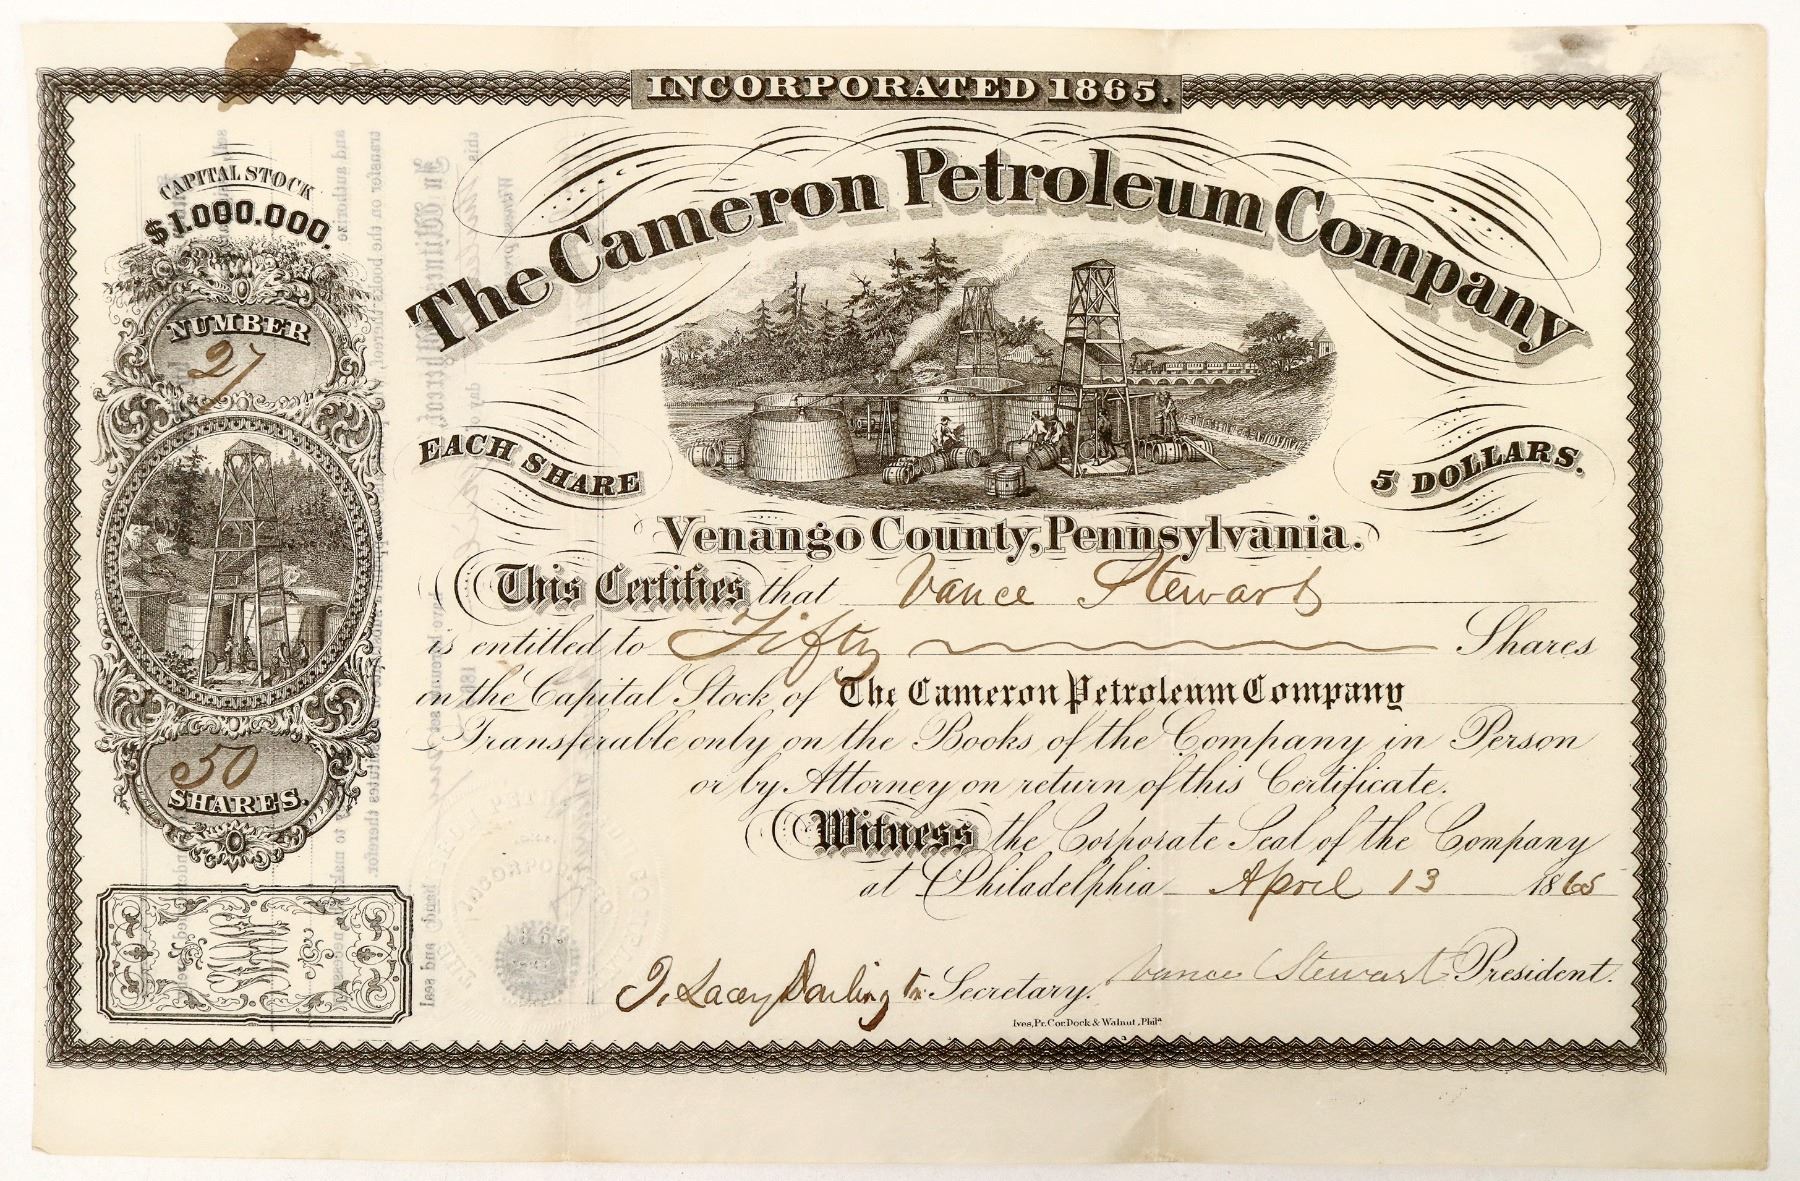 INCORPORATED 1865.
The Cameron Petroleum Company
CAPITAL STOCK
$1.000.000.
NUMBER
27
EACH SHARE
5 DOLLARS.
Venango County, Pennsylvania.
This Certifies that Vance Stewart
is entitled to Fifty Shares
in the Capital Stock of The Cameron Petroleum Company
Transferable only on the Books of the Company in Person
or by Attorney on return of this Certificate.
50
SHARES.
Witness the Corporate Seal of the Company
at Philadelphia April 13 1865
J. Lacey Darling Secretary. Vance Stewart President.
Ives, Pr. Cor. Dock & Walnut, Phila